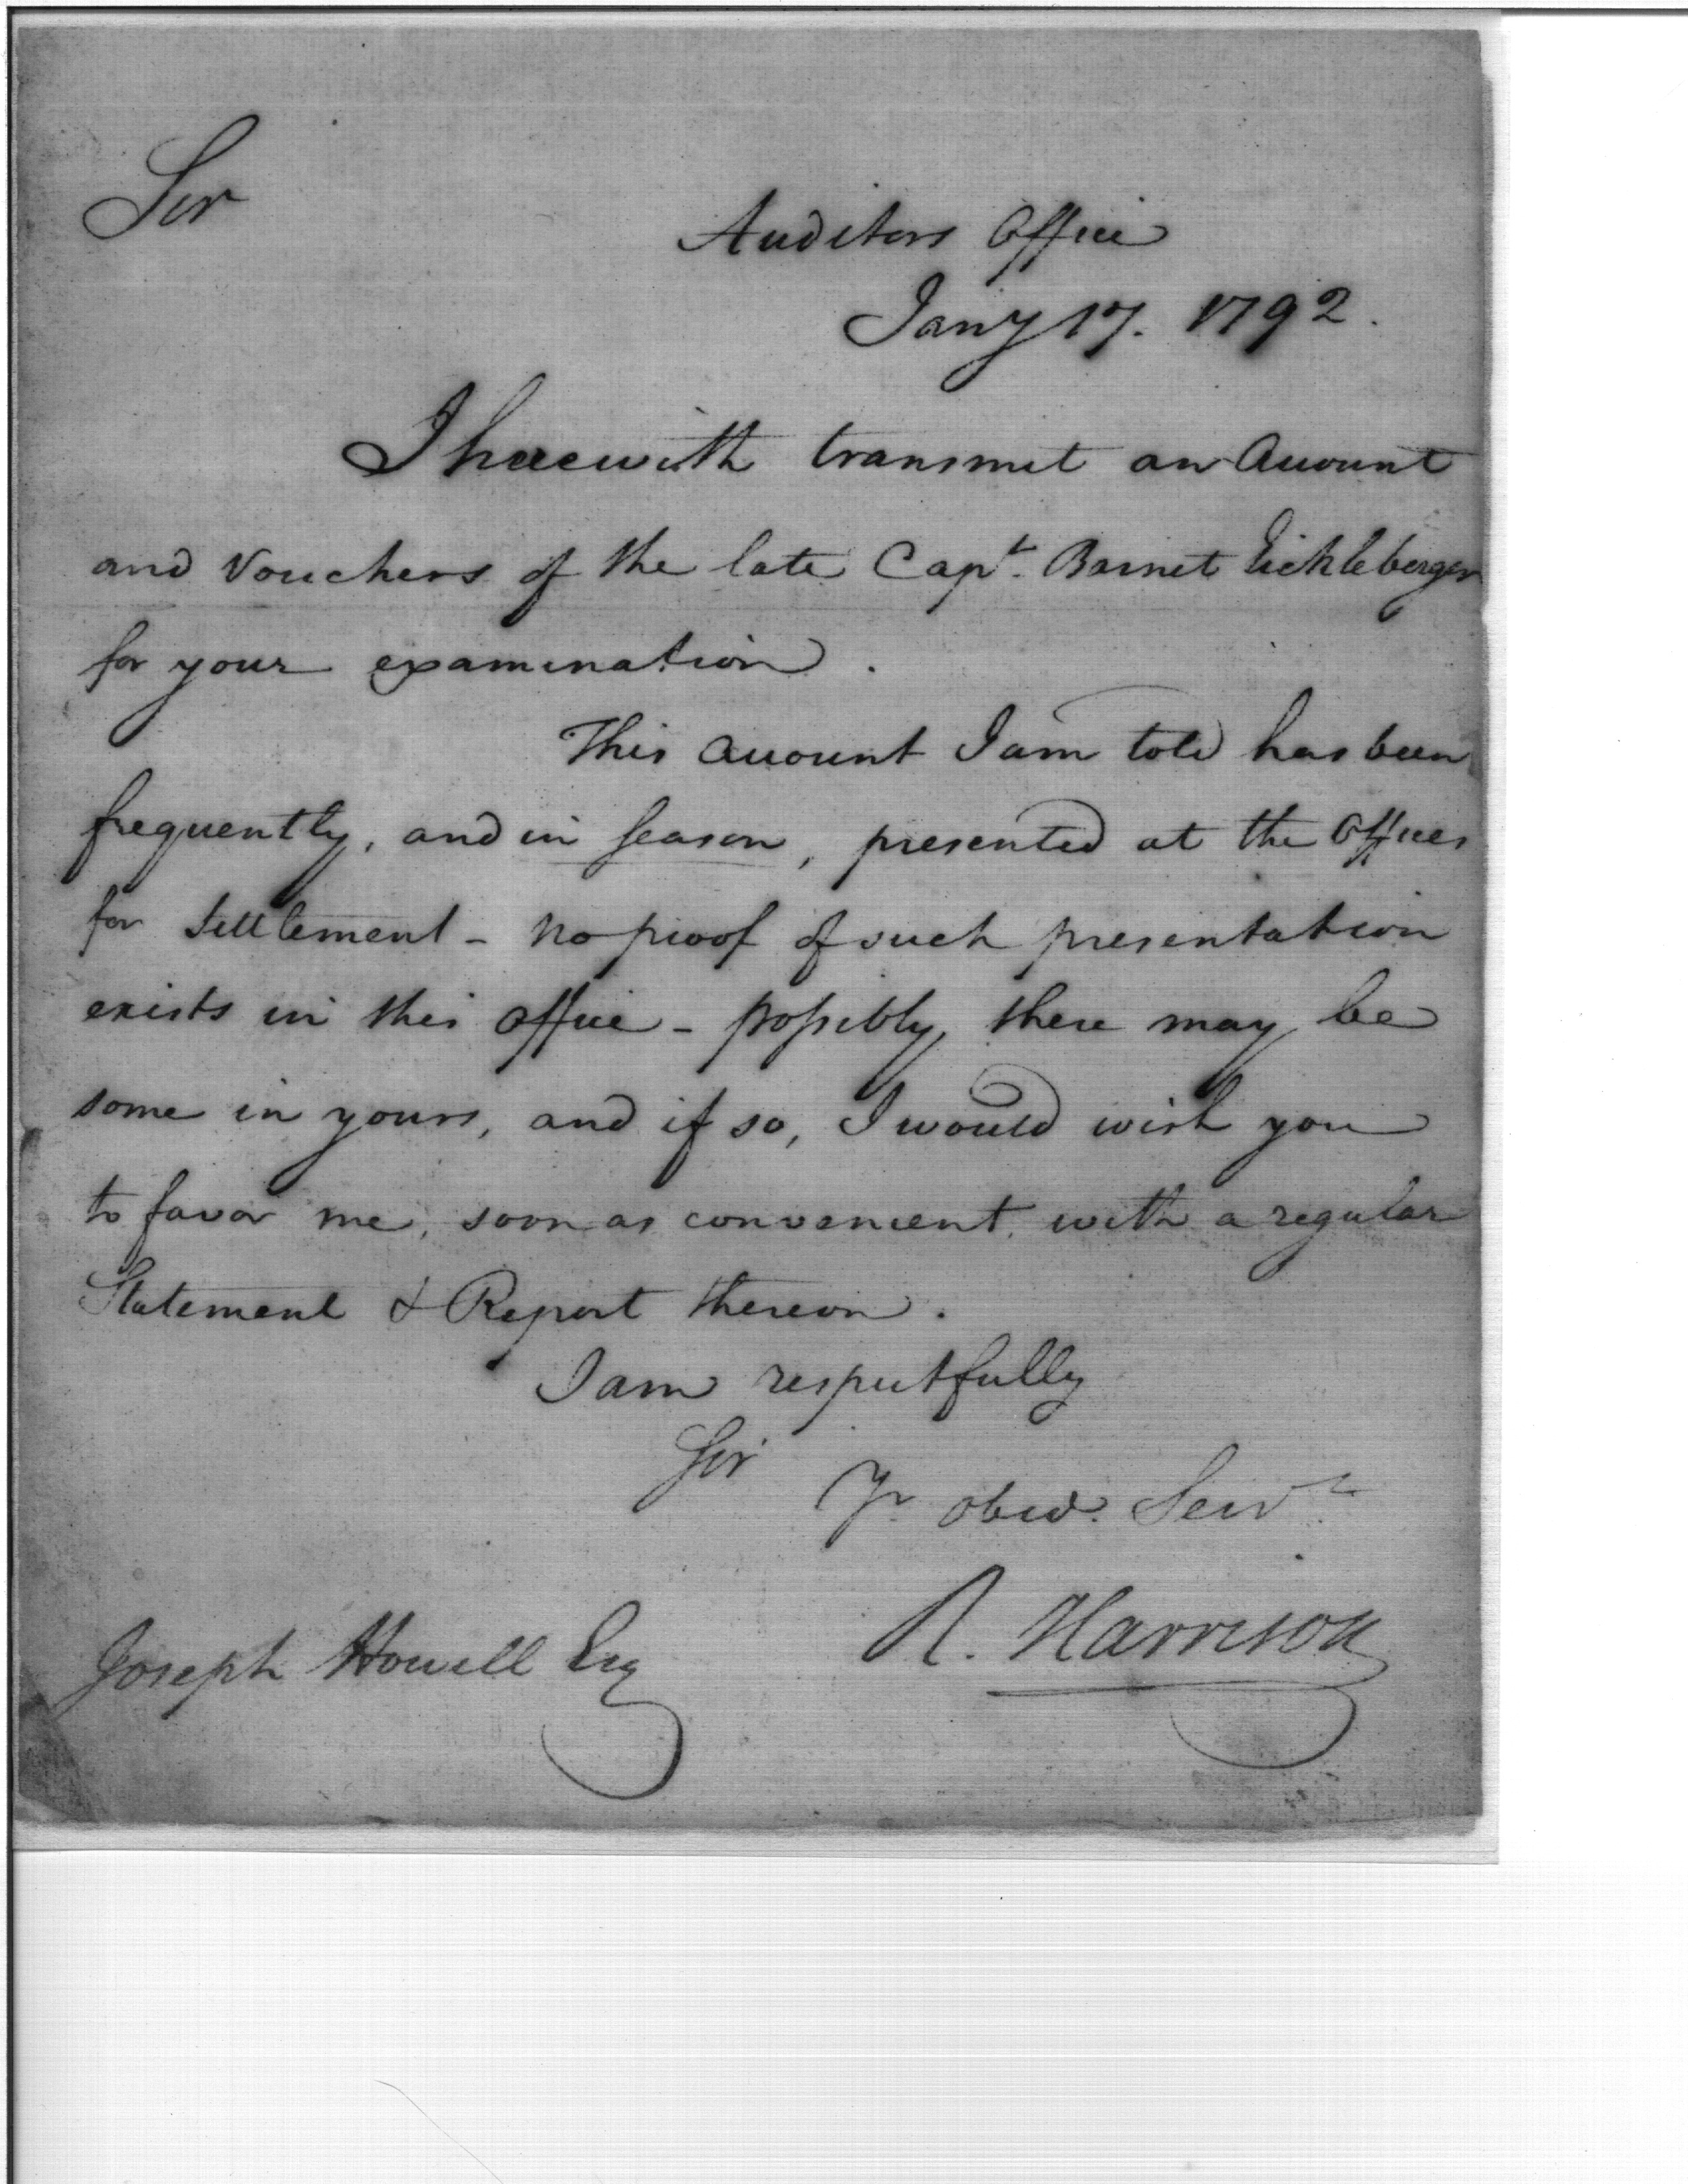 Sir
Auditors Office
Jany 17. 1792.
I herewith transmit an Account
and Vouchers of the late Capt. Barnet Eickleberger
for your examination.
This Account I am told has been
frequently, and in season, presented at the Offices
for settlement - no proof of such presentation
exists in this Office - possibly there may be
some in yours, and if so, I would wish you
to favor me, soon as convenient, with a regular
Statement & Report thereon.
I am respectfully
Sir
Yr. obed. Servt.
R. Harrison
Joseph Howell Esq